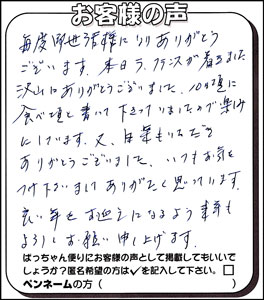 お客様の声
毎度お世話様になりありがとう
ございます。本日ラ・フランスが着きました
沢山にありがとうございました。10日頃に
食べ頃と書いて下さっていましたので楽しみ
にしています。又、日めくりもいただき
ありがとうございました。いつもお気を
つけ下さいましてありがたく思っています。
良い年をお迎えになるよう来年も
よろしくお願い申し上げます。
ばっちゃん便りにお客様の声として掲載してもいいで
しょうか？匿名希望の方は✓を記入して下さい。□
ペンネームの方（　　　　　　　　）